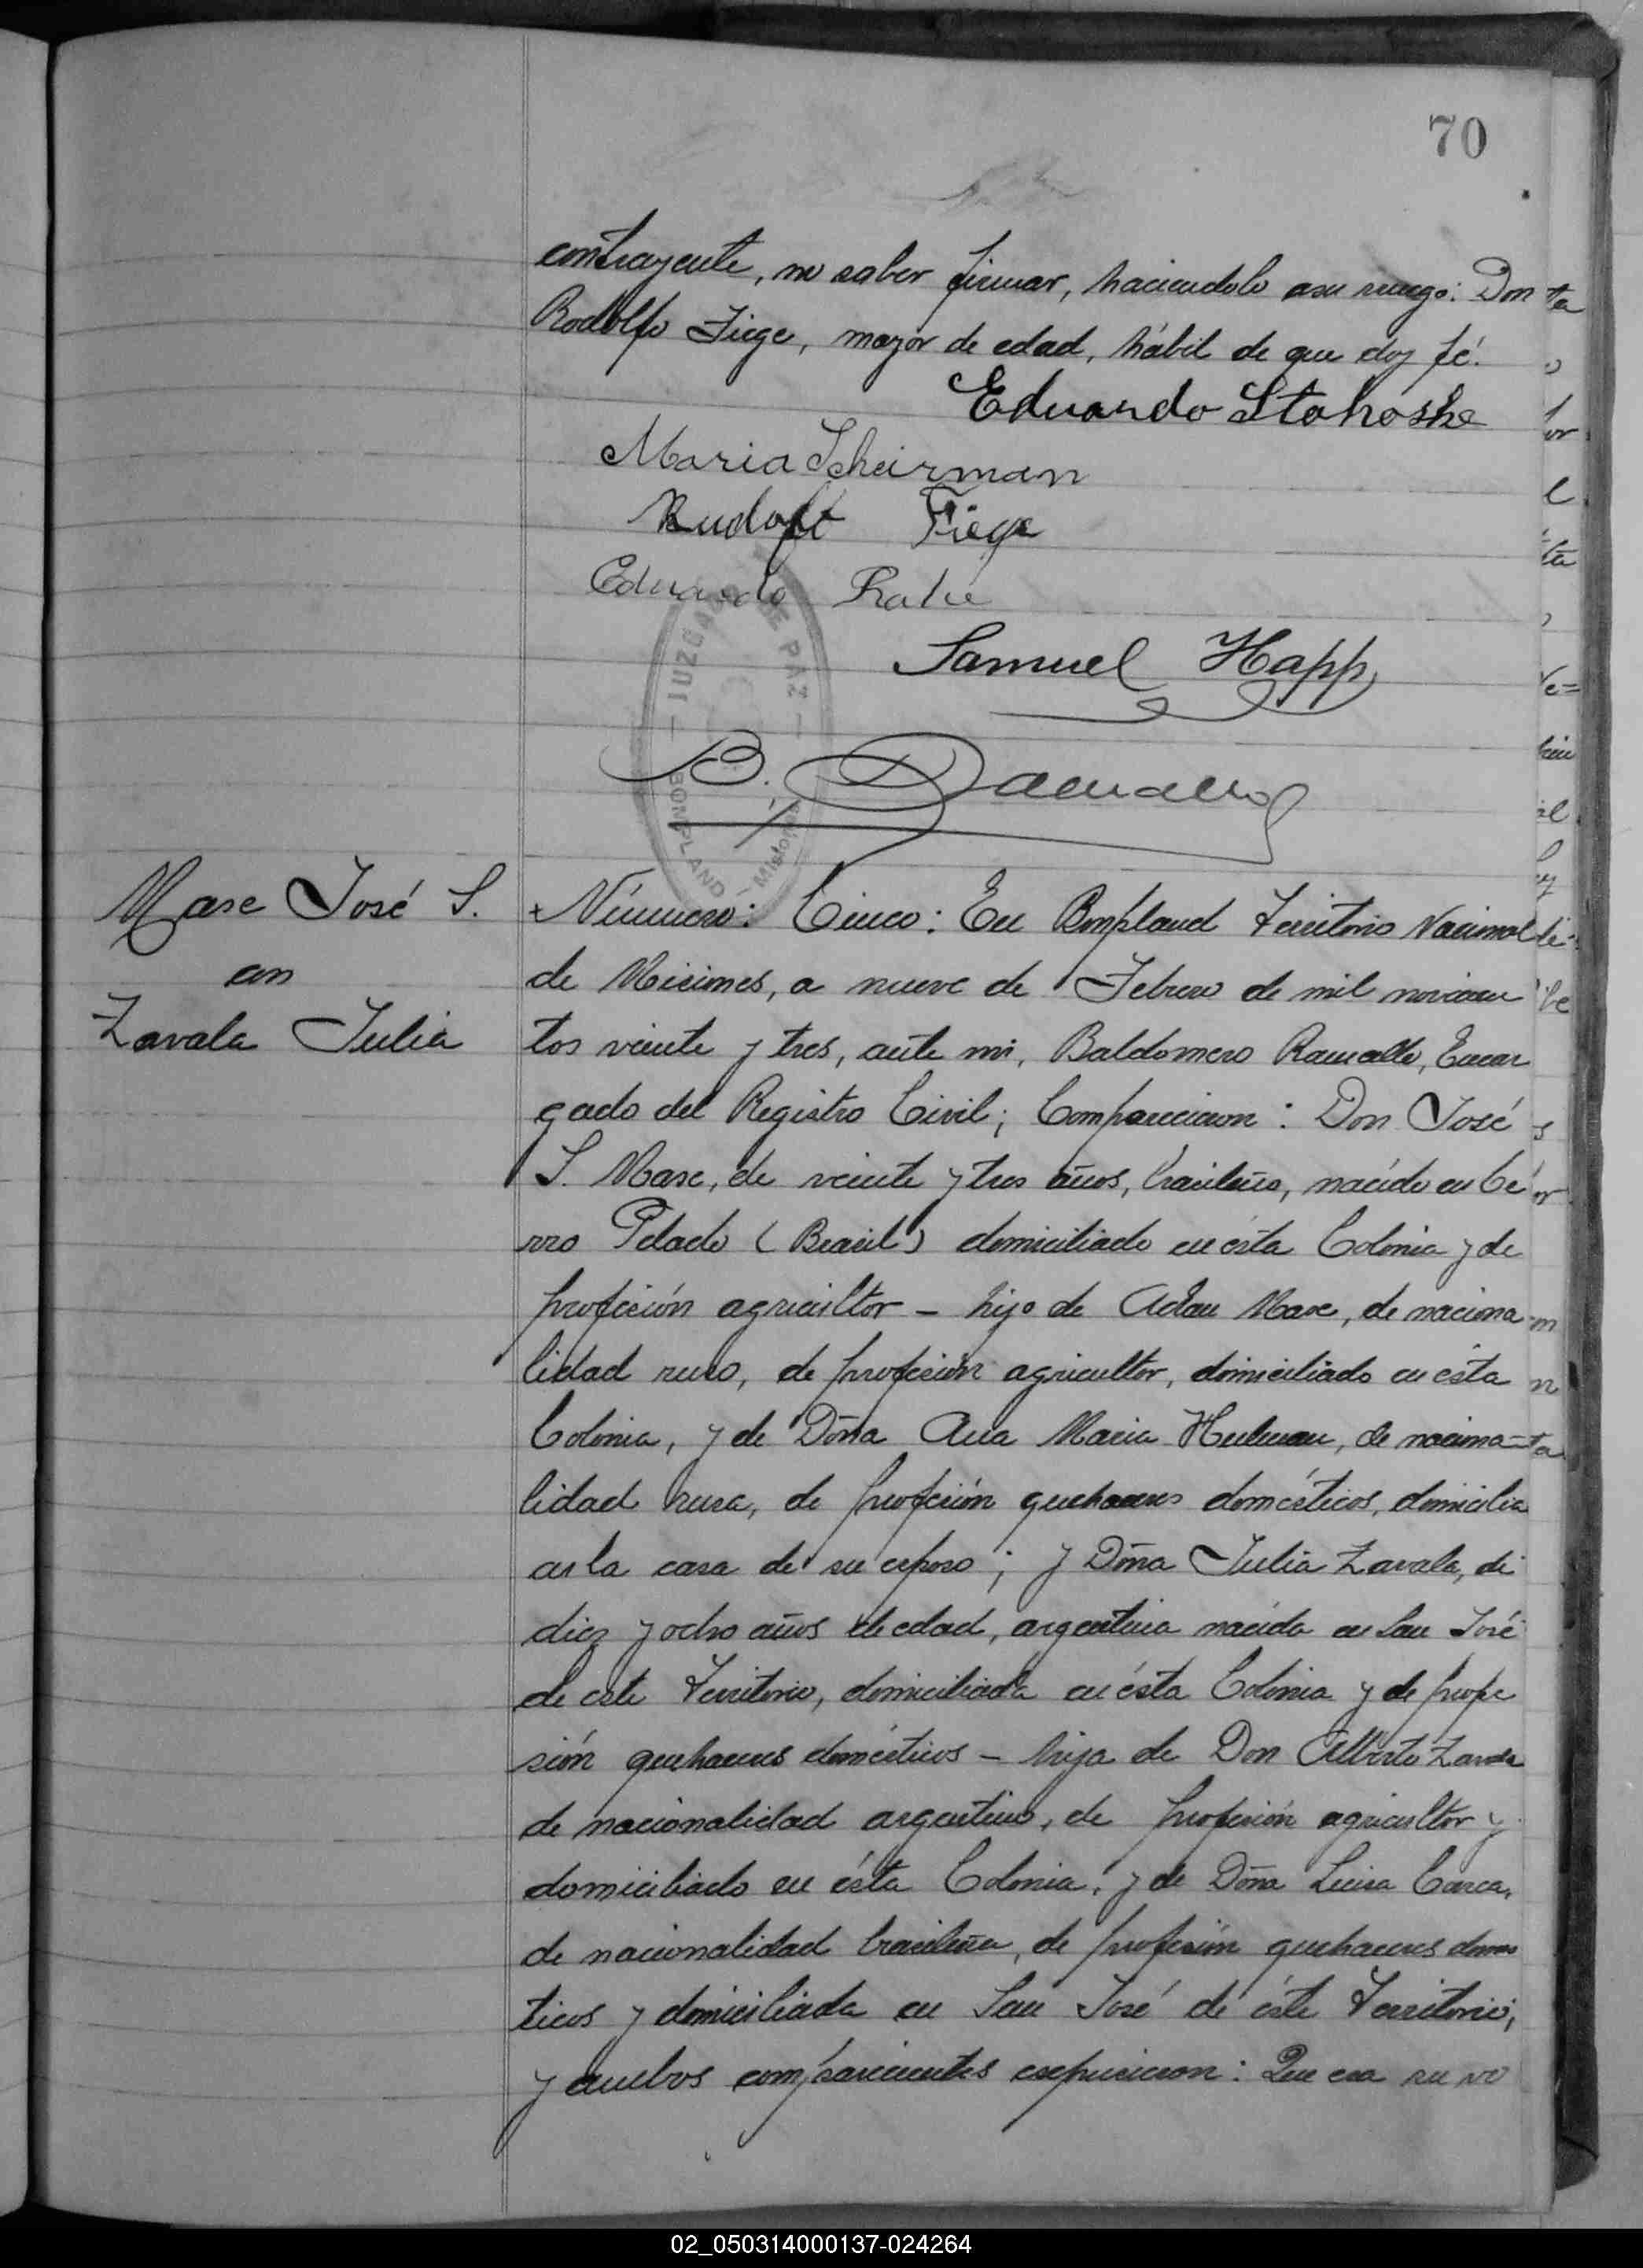 70
contrayente, no saber firmar, haciendolo a su ruego: Don
Rodolfo Fiege, mayor de edad, hábil de que doy fé.
Eduardo Stahoske
Maria Scheirman
Rudolf Fiege
Eduardo
Samuel Happ
JUZGADO DE PAZ
BONPLAND - Misiones
B. Ramallo
Mase José S.
con
Zavala Julia
Número: Cinco: En Bompland Territorio Nacional
de Misiones, a nueve de Febrero de mil novicien
tos veinte y tres, ante mi, Baldomero Ramallo, Encar
gado del Registro Civil; Comparecieron: Don José
S. Mase, de veinte y tres años, brasileño, nacido en Ce
rro Pelado (Brasil) domiciliado en ésta Colonia y de
profesión agricultor - hijo de Adan Mase, de naciona
lidad ruso, de profesión agricultor, domiciliado en ésta
Colonia, y de Doña Ana Maria de naciona
lidad rusa, de profesión quehaceres domésticos, domicilia
en la casa de su esposo; y Doña Julia Zavala, de
diez y ocho años de edad, argentina nacida en San José
de este Territorio, domiciliada en ésta Colonia y de profe
sión quehaceres domésticos - hija de Don Alberto Zavala
de nacionalidad argentino, de profesión agricultor y
domiciliado en ésta Colonia, y de Doña Luisa
de nacionalidad brasileña, de profesión quehaceres domes
ticos y domiciliada en San José de éste Territorio;
y ambos comparecientes expusieron: Que era su vo
02_050314000137-024264